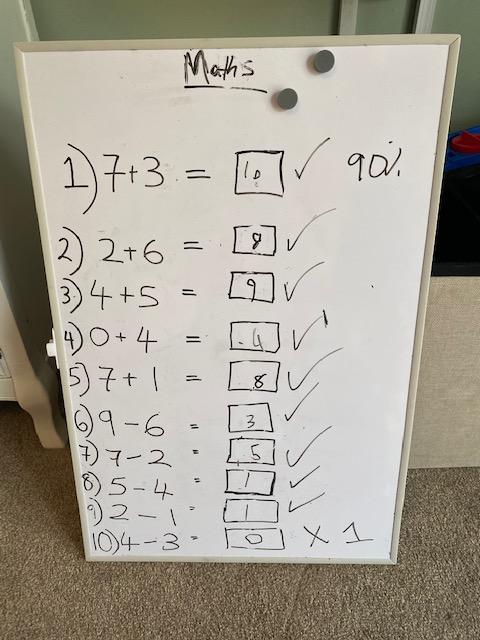 Maths
1) 7+3 = 10 ✓ 90%
2) 2+6 = 8 ✓
3) 4+5 = 9 ✓
4) 0+4 = 4 ✓
5) 7+1 = 8 ✓
6) 9-6 = 3 ✓
7) 7-2 = 5 ✓
8) 5-4 = 1 ✓
9) 2-1 = 1 ✓
10) 4-3 = 0 X 1